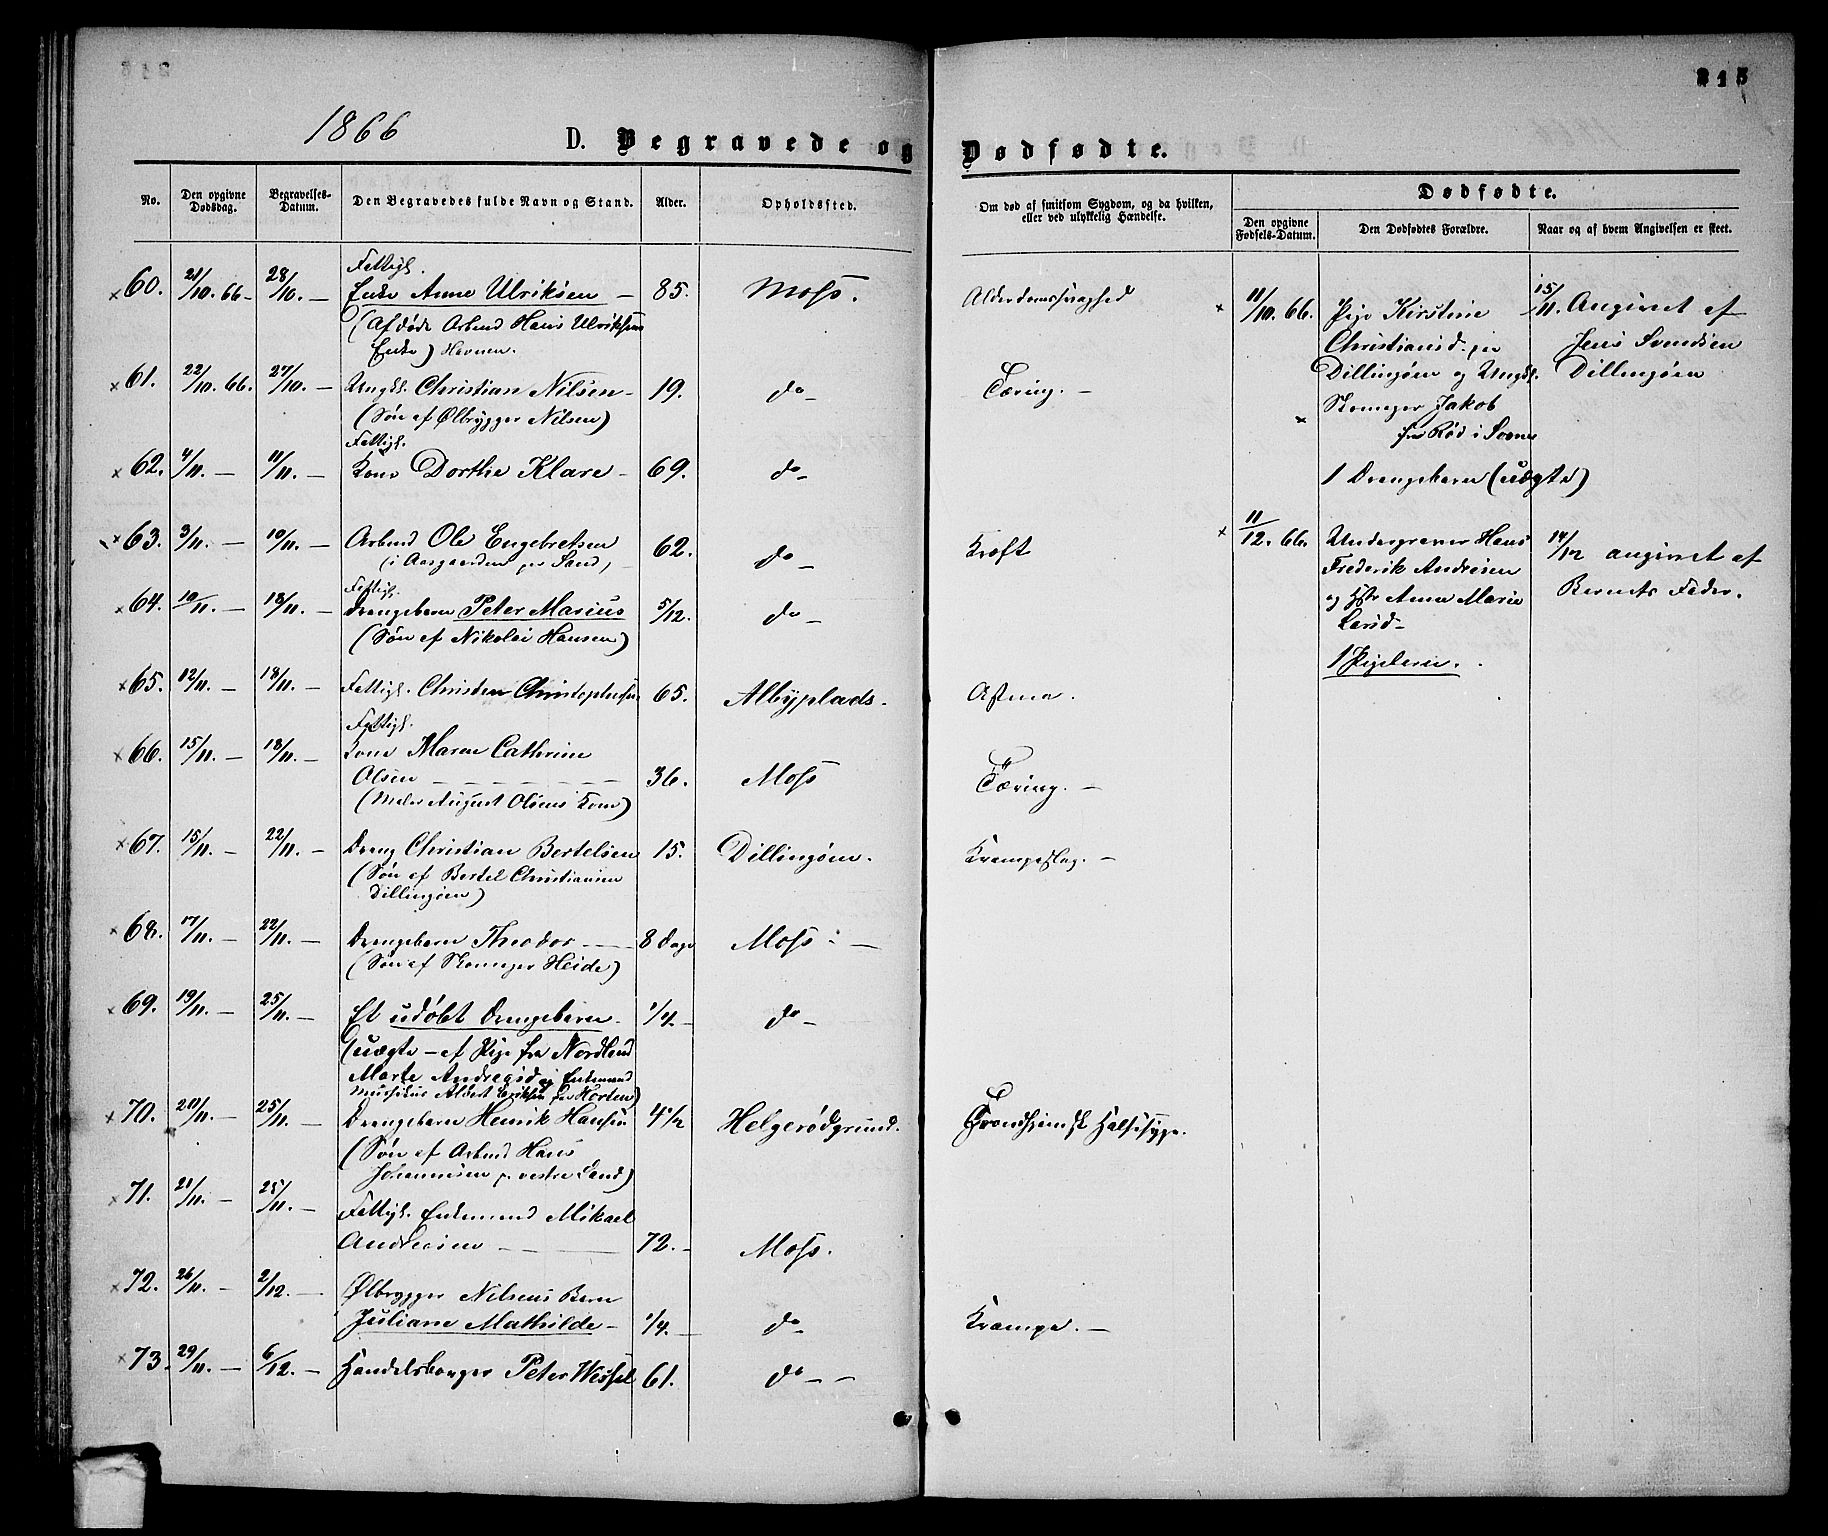 215
1866
D. Begravede og Dødfødte.
No. Den opgivne Dødsdag. Begravelses-Datum. Den Begravedes fulde Navn og Stand. Alder. Opholdssted.
Om død af smitsom Sygdom, og da hvilken, eller ved ulykkelig Hændelse.
Dødfødte.
Den opgivne Fødsels-Datum. Den Dødfødtes Forældre. Naar og af hvem Angivelsen er skeet.
Fattigl.
60. 21/10. 66 - 28/10. - Enke Anne Ulriksen - 85. Moss. Alderdomssvaghed
(Afdøde Arbmd Hans Ulriksens
Enke) Havnen.
61. 22/10. 66. 27/10. - Ungk. Christian Nilsen - 19. do - Tæring. -
(Søn af Ølbrygger Nilsen)
Fattigl.
62. 4/11. - 11/11. - Kone Dorthe Klare - 69. do -
63. 3/11. - 10/11. - Arbmd Ole Engebretsen 62. do - Kræft
(i Aasgaarden på Sand)
Fattigl.
64. 10/11. - 18/11. - Drengebarn Peter Marius 5/12. do -
(Søn af Nikolai Hansen)
65. 12/11. - 18/11. - Fattigl. Christen Christophersen 65. Albyplads - Astma.
Fattigl.
66. 15/11. - 18/11. - Kone Maren Cathrine
Olsen - 36. Moss Tæring. -
(Maler August Olsens Kone)
67. 15/11. - 22/11. - Dreng Christian Bertelsen 15. Dillingøen. Krampeslag. -
(Søn af Bertel Christiansen
Dillingøen)
68. 17/11. - 22/11. - Drengebarn Theodor - 8 Dage Moss. -
(Søn af Skomager Heide)
69. 19/11. - 25/11. - Et udøbt Drengebarn. 1/4 - do -
(uægte - af Pige fra Nordland
Marte Andreasd og Enkemand
Musikus Albert Eriksen fra Horten)
70. 20/11. - 25/11. - Drengebarn Henrik Hansen 4 1/2 Helgerødgrund. Trondhjemsk Halssyge.
(Søn af Arbmd Hans
Johannesen p. vestre Sand)
71. 21/11. - 25/11. - Fattigl. Enkemand Mikael
Andreasen - 72. - Moss.
72. 26/11. - 2/12. - Ølbrygger Nilsens Barn
Juliane Mathilde - 1/4. - do - Krampe. -
73. 29/11. - 6/12. - Handelsborger Peter Wessel 61. do - -
11/10. 66. Pige Kirstine 15/11. Angivet af
Christiansd. paa Jens Svendsen
Dillingøen og Ungk. Dillingøen
Skomager Jakob
fra Rød i Svene
1 Drengebarn (uægte)
11/12. 66. Undergraver Hans 14/12 angivet af
Frederik Andresen Barnets Fader.
og Hstr Anne Marie
Larsd -
1 Pigebarn.